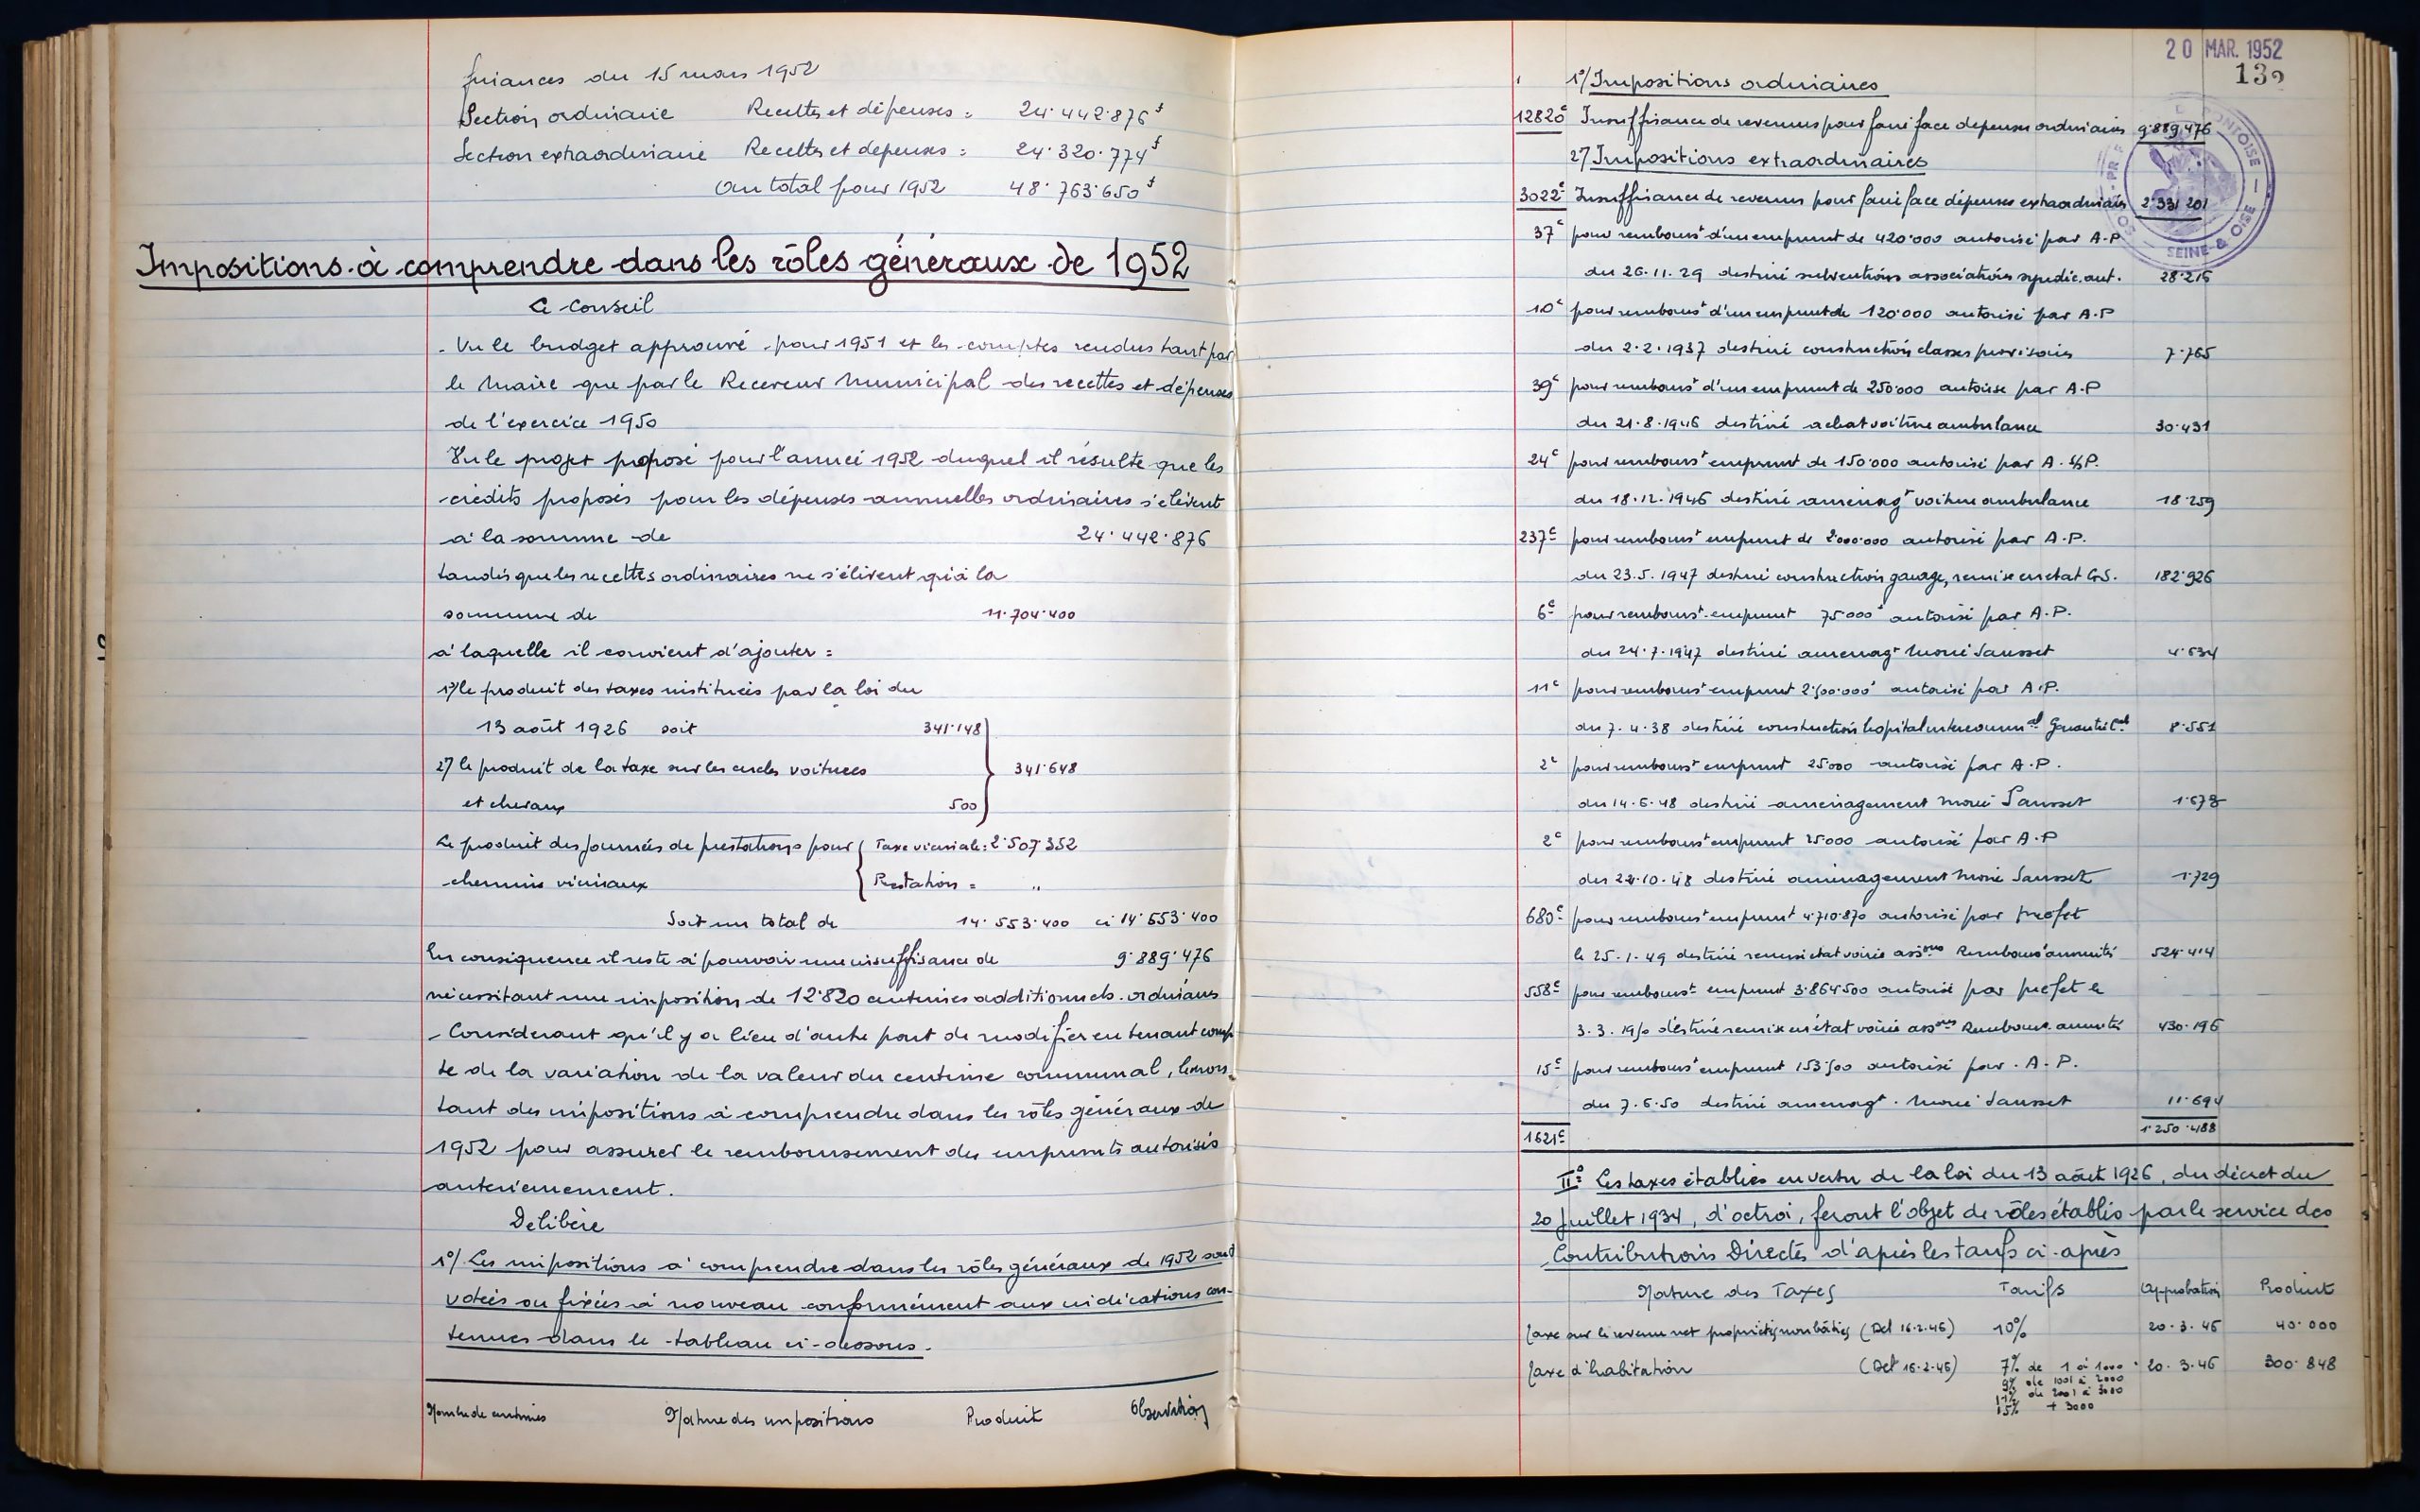 finances du 15 mars 1952
Section ordinaire Recettes et dépenses = 24.442.876f
Section extraordinaire Recettes et dépenses = 24.320.774f
au total pour 1952 48.763.650f
Impositions à comprendre dans les rôles généraux de 1952
Le Conseil
- Vu le budget approuvé pour 1951 et les comptes rendus tant par
le Maire que par le Receveur Municipal des recettes et dépenses
de l'exercice 1950
Vu le projet proposé pour l'année 1952 duquel il résulte que les
crédits proposés pour les dépenses annuelles ordinaires s'élèvent
à la somme de 24.442.876
tandis que les recettes ordinaires ne s'élèvent qu'à la
somme de 11.704.400
à laquelle il convient d'ajouter =
1°/ le produit des taxes instituées par la loi du
13 août 1926 soit 341.148
2°/ le produit de la taxe sur les cercles voitures 341.648
et chevaux 500
Le produit des Journées de prestations pour { Taxe vicinale : 2.507.352
chemins vicinaux Prestation = "
Soit un total de 14.553.400 ci 14.553.400
En conséquence il reste à pourvoir une insuffisance de 9.889.476
nécessitant une imposition de 12.820 centimes additionnels ordinaires
- Considérant qu'il y a lieu d'autre part de modifier en tenant comp
te de la variation de la valeur du centime communal, le mon
tant des impositions à comprendre dans les rôles généraux de
1952 pour assurer le remboursement des emprunts autorisés
antérieurement.
Délibère
1°/ Les impositions à comprendre dans les rôles généraux de 1952 sont
votées ou fixées à nouveau conformément aux indications con-
tenues dans le tableau ci-dessous.
Nombre de centimes Nature des impositions Produit Observation
20 MAR. 1952
132
1°/ Impositions ordinaires
12820c Insuffisance de revenus pour faire face dépenses ordinaires 9.889.476
2°/ Impositions extraordinaires
3022c Insuffisance de revenus pour faire face dépenses extraordinaires 2.331.201
PONTOISE
SEINE & OISE
37c pour rembourst d'un emprunt de 420.000 autorisé par A.P
du 26.11.29 destiné subventions associations syndic. aut. 28.216
10c pour rembourst d'un emprunt de 120.000 autorisé par A.P
du 2.2.1937 destiné construction classes provisoires 7.765
39c pour rembourst d'un emprunt de 250.000 autorisé par A.P
du 21.8.1946 destiné achat voiture ambulance 30.431
24c pour rembourst emprunt de 150.000 autorisé par A.S/P.
du 18.12.1946 destiné aménagt voiture ambulance 18.259
237c pour rembourst emprunt de 2.000.000 autorisé par A.P.
du 23.5.1947 destiné construction garage, remise en état G.S. 182.926
6c pour rembourst emprunt 75.000f autorisé par A.P.
du 24.7.1947 destiné aménagt Mont Sausset 4.634
11c pour rembourst emprunt 2.500.000f autorisé par A.P.
du 7.4.38 destiné construction hopital intercommal Garantie Cale 8.551
2c pour rembourst emprunt 25.000 autorisé par A.P.
du 14.6.48 destiné aménagement Sausset 1.678
2c pour rembourst emprunt 25.000 autorisé par A.P
du 22.10.48 destiné aménagement Sausset 1.729
680c pour rembourst emprunt 4.710.870 autorisé par préfet
le 25.1.49 destiné remise état voirie assons Remboust annuités 524.414
558c pour rembourst emprunt 3.864.500 autorisé par préfet le
3.3.1950 destiné remise en état voirie assons Rembours. annuités 430.196
15c pour rembourst emprunt 153.500 autorisé par A.P.
du 7.6.50 destiné aménagt. Sausset 11.694
1621c 1.250.488
II° Les taxes établies en vertu de la loi du 13 août 1926, du décret du
20 Juillet 1934, d'octroi, feront l'objet de rôles établis par le service des
Contributions Directes d'après les tarifs ci-après
Nature des Taxes Tarifs Approbation Produit
Taxe sur le revenu net propriétés non bâties (Del 16.2.46) 10% 20.3.46 40.000
Taxe d'habitation (Del 16.2.46) 7% de 1 à 1000 20.3.46 300.848
9% de 1001 à 2000
11% de 2001 à 3000
15% + 3000